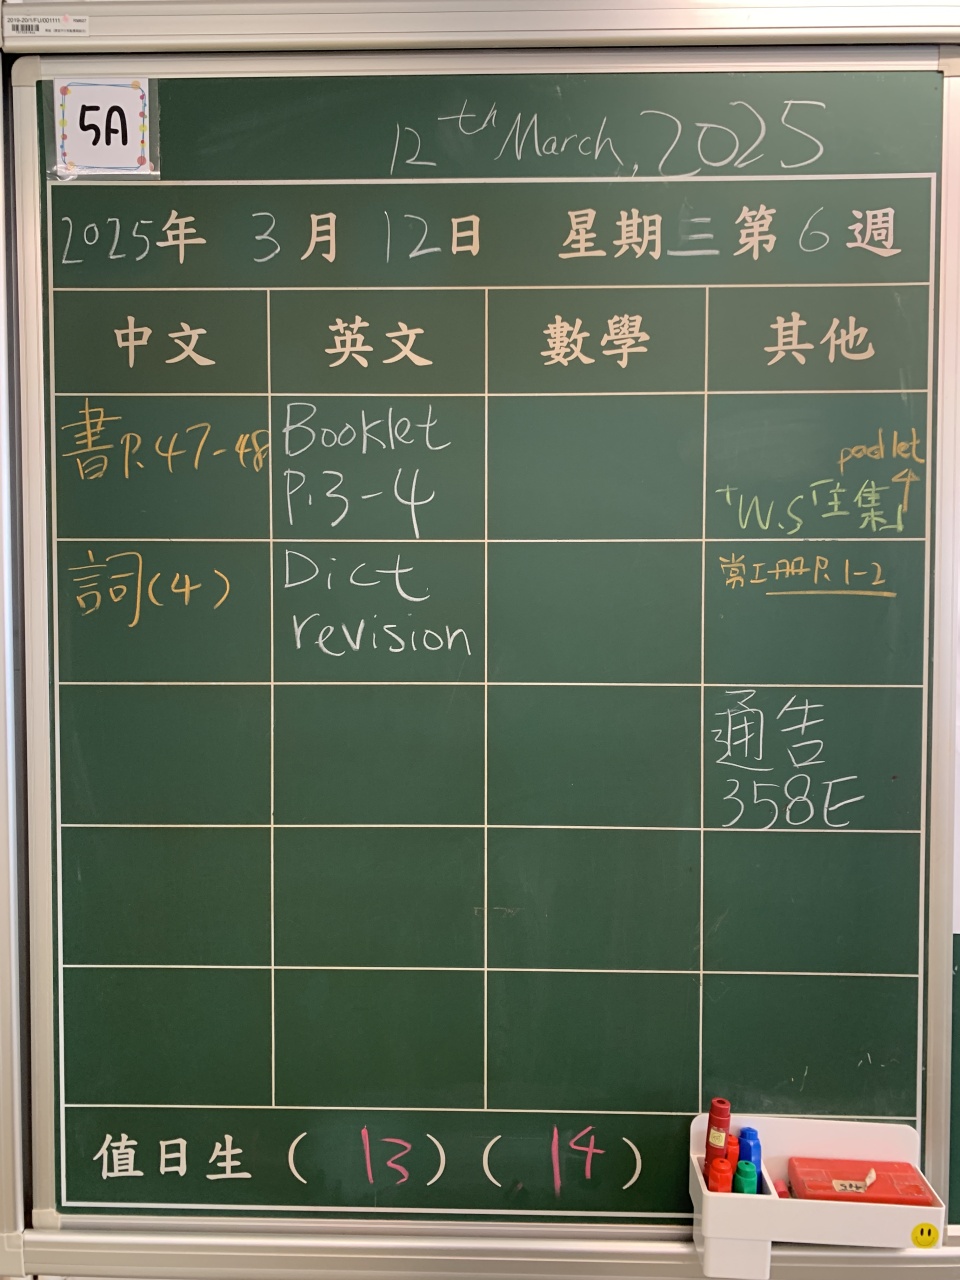 2019-20/1/FU/001111
5A
12th March, 2025
2025年 3月 12日 星期三 第6週
中文 英文 數學 其他
書P.47-48
Booklet
P.3-4
padlet
W.S「主集」
詞(4)
Dict.
revision
常工冊P.1-2
通告
358E
值日生 ( 13 ) ( 14 )